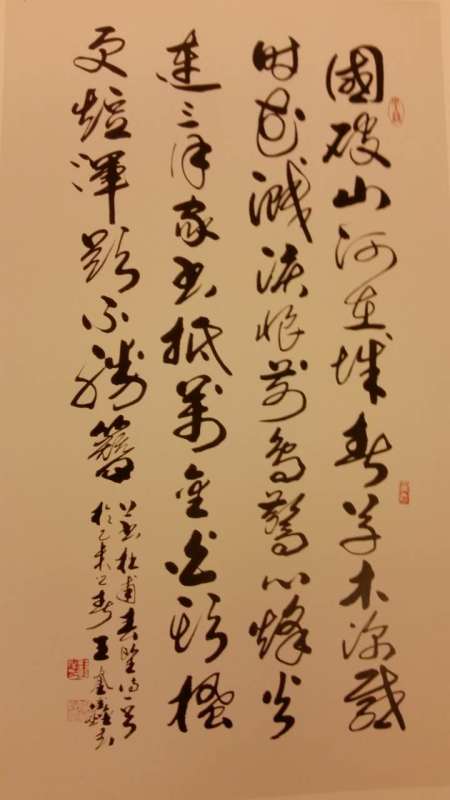 國破山河在城春草木深感
時花濺淚恨別鳥驚心烽火
連三月家書抵萬金白頭搔
更短渾欲不勝簪
杜甫春望詩一首
於乙未之春王